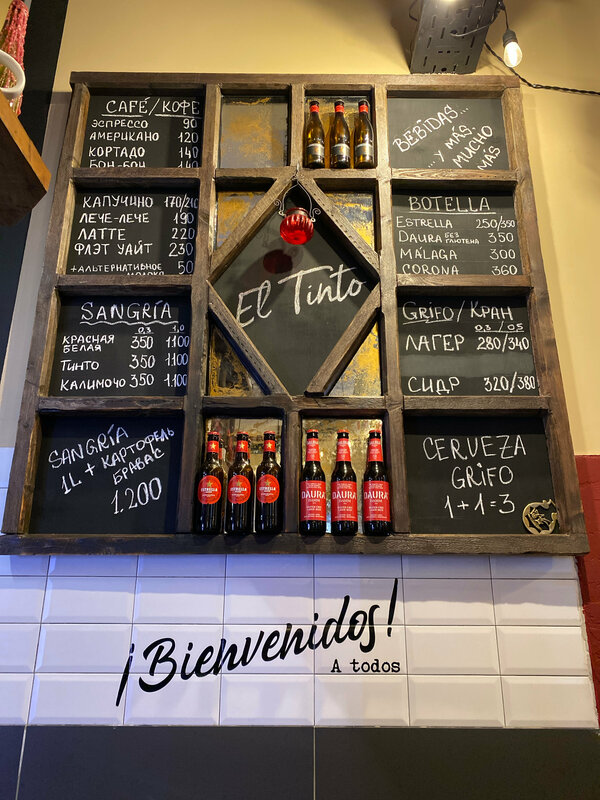 CAFÉ/КОФЕ
ЭСПРЕССО 90
АМЕРИКАНО 120
КОРТАДО 140
БОН-БОН 140
BEBIDAS...
...Y MÁS,
MUCHO
MÁS
КАПУЧИНО 170/210
ЛЕЧЕ-ЛЕЧЕ 190
ЛАТТЕ 220
ФЛЭТ УАЙТ 230
+АЛЬТЕРНАТИВНОЕ 50
МОЛОКО
EL TINTO
BOTELLA
ESTRELLA 250/350
DAURA БЕЗ ГЛЮТЕНА 350
MÁLAGA 300
CORONA 360
SANGRÍA
0,3 1,0
КРАСНАЯ
БЕЛАЯ 350 1100
ТИНТО 350 1100
КАЛИМОЧО 350 1.100
GRIFO/КРАН
0,3 / 0,5
ЛАГЕР 280/340
СИДР 320/380
SANGRÍA
1L + КАРТОФЕЛЬ
БРАВАС
1.200
ESTRELLA
ESTRELLA
ESTRELLA
DAURA
DAURA
DAURA
CERVEZA
GRIFO
1+1=3
¡Bienvenidos!
A todos